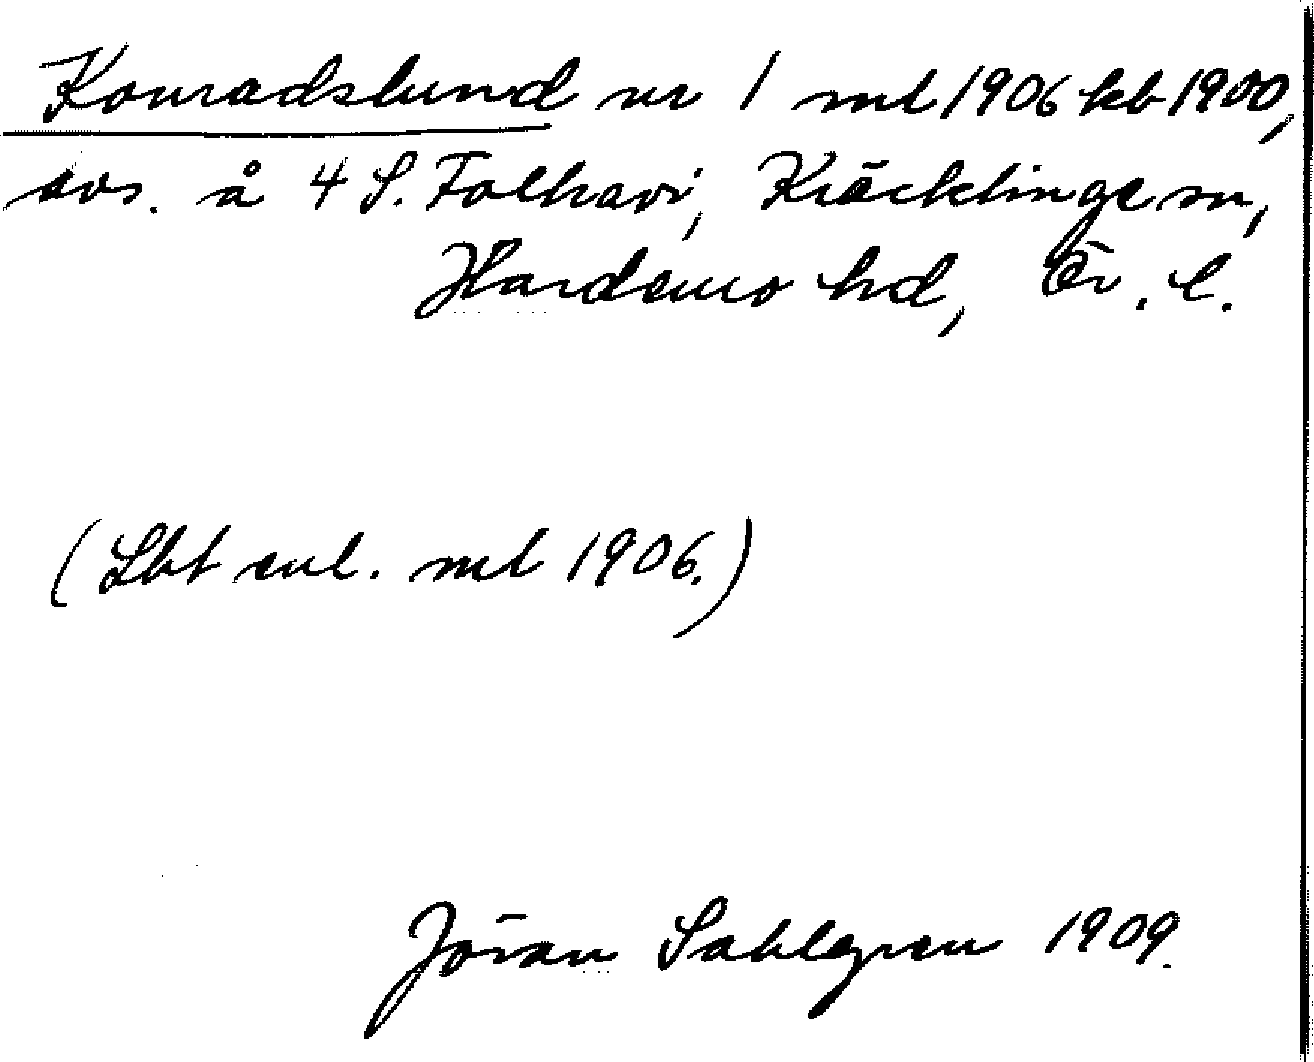 Konradslund nr 1 ml 1906 kb 1900,
avs. å 4 S. Folkavi, Kräcklinge sn,
Hardemo hd, Ör. l.
(Lht enl. ml 1906.)
Jöran Sahlgren 1909.